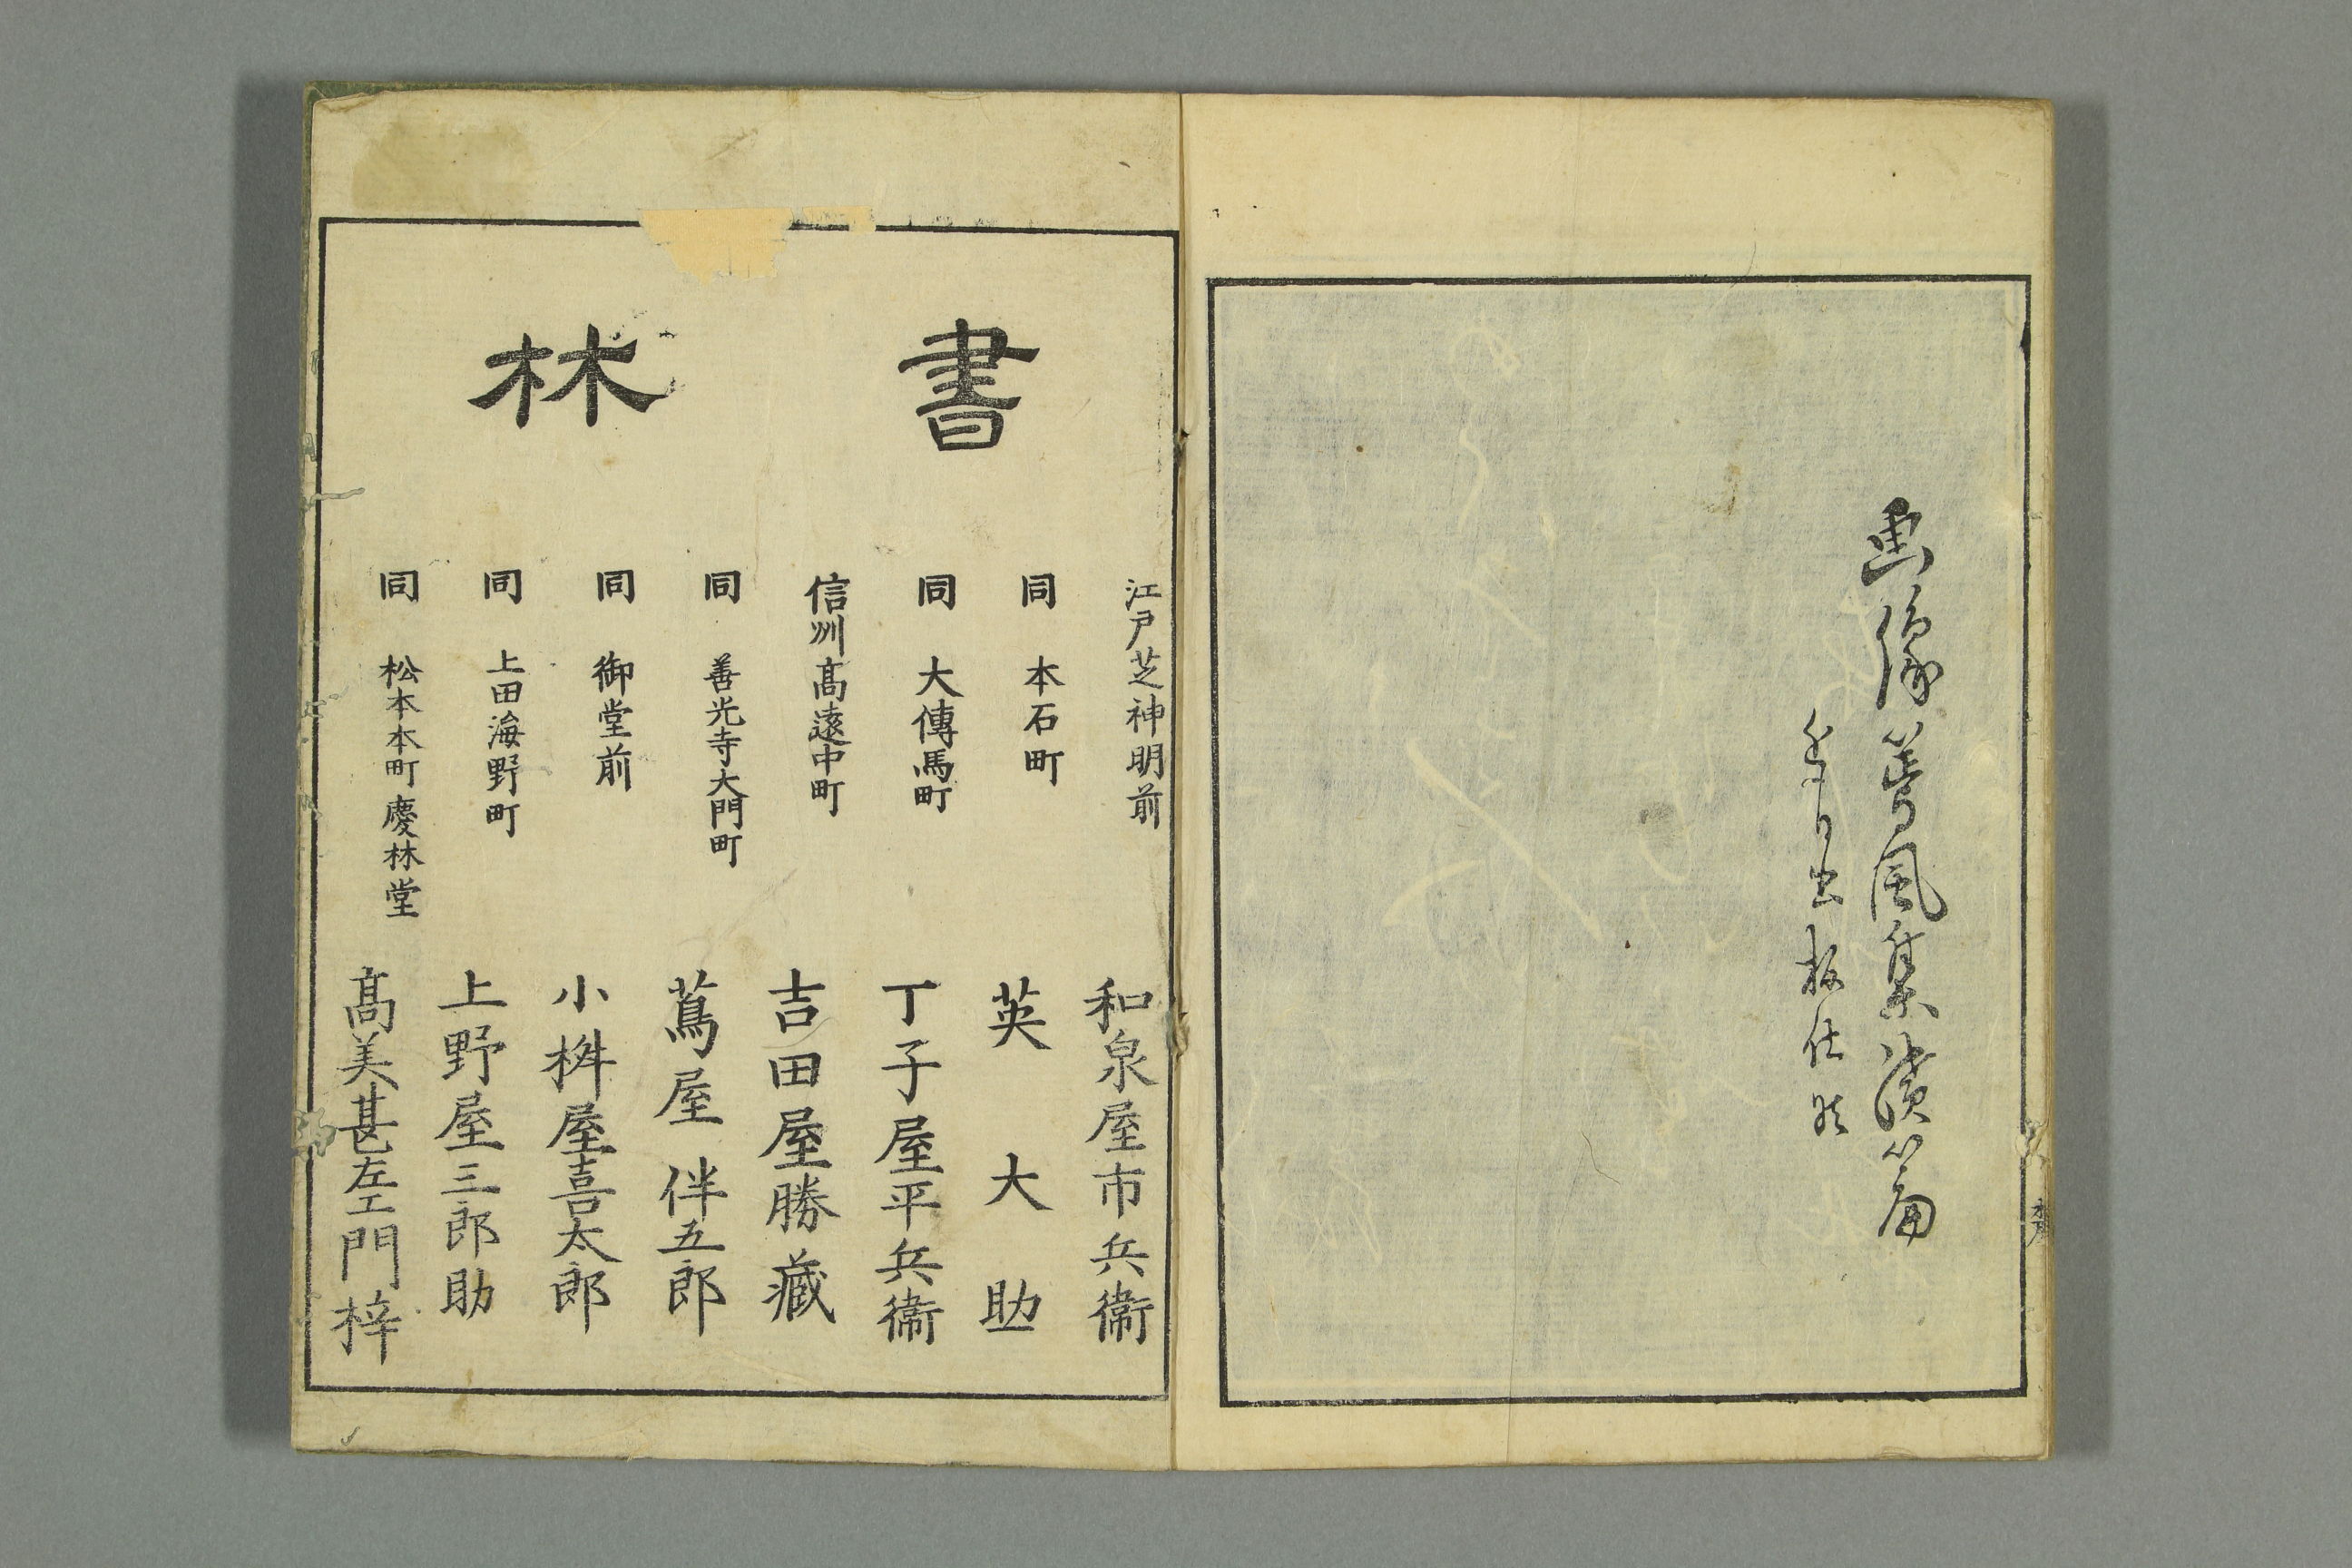 画像蕚風集後篇
近日出板仕候
書林
江戸芝神明前 和泉屋市兵衞
同 本石町 英大助
同 大傳馬町 丁子屋平兵衞
信州髙遠中町 吉田屋勝藏
同 善光寺大門町 蔦屋伴五郎
同 御堂前 小桝屋喜太郎
同 上田海野町 上野屋三郎助
同 松本本町慶林堂 髙美甚左エ門梓